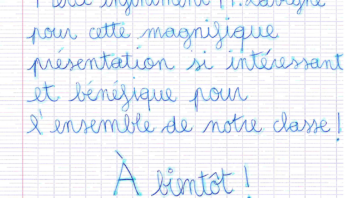 Merci infiniment M. Lavigne
pour cette magnifique
présentation si intéressant
et bénéfique pour
l'ensemble de notre classe !
À bientôt !